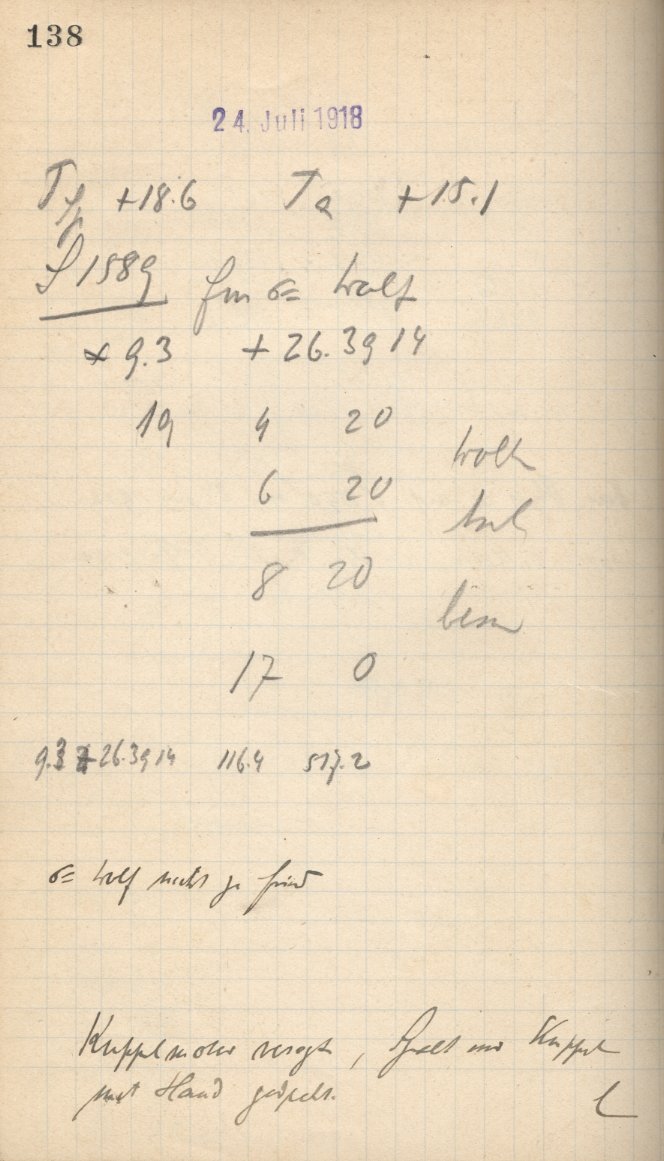 138
24. Juli 1918
+18.6 Ta +15.1
1589 Wolf
9.3 +26.3914
19 4 20
6 20
8 20
17 0
9.3 +26.3914 116.4 517.2
Wolf nicht
Kuppelmotor versagt, Spalt und Kuppel
mit Hand gedreht.